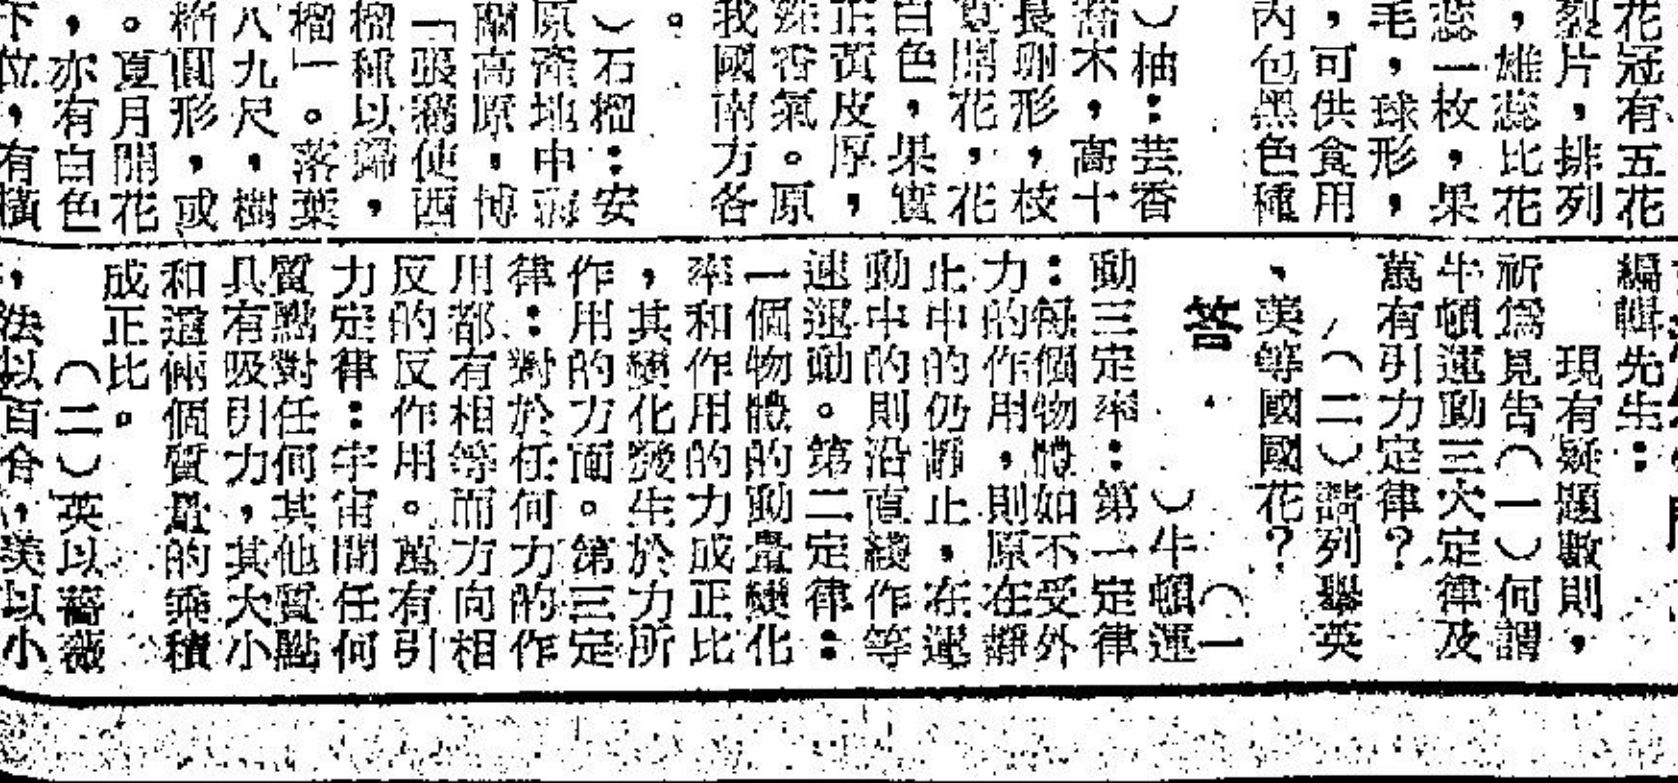 花冠有五花
裂片，排列
，雄蕊比花
蕊一枚，果
毛，球形，
，可供食用
內包黑色種
）柚：芸香
喬木，高十
長卵形，枝
夏開花，花
白色，果實
正黃皮厚，
辣香氣。原
我國南方各
。
）石榴：安
原產地中海
爾高原，博
「張騫使西
榴種以歸，
榴」。落葉
八九尺，樹
橢圓形，或
。夏月開花
，亦有白色
下位，有橫
編輯先生：
現有疑題數則，
祈爲見告（一）何謂
牛頓運動三大定律及
萬有引力定律？
（二）請列舉英
，美等國國花？
答
（一
）牛頓運
動三定率：第一定律
：每個物體如不受外
力的作用，則原在靜
止中的仍靜止，在運
動中的則沿直綫作等
速運動。第二定律：
一個物體的動量變化
率和作用的力成正比
，其變化發生於力所
作用的方面。第三定
律：對於任何力的作
用都有相等而方向相
反的反作用。萬有引
力定律：宇宙間任何
質點對任何其他質點
具有吸引力，其大小
和這兩個質量的乘積
成正比。
（二）英以薔薇
，法以百合，美以小